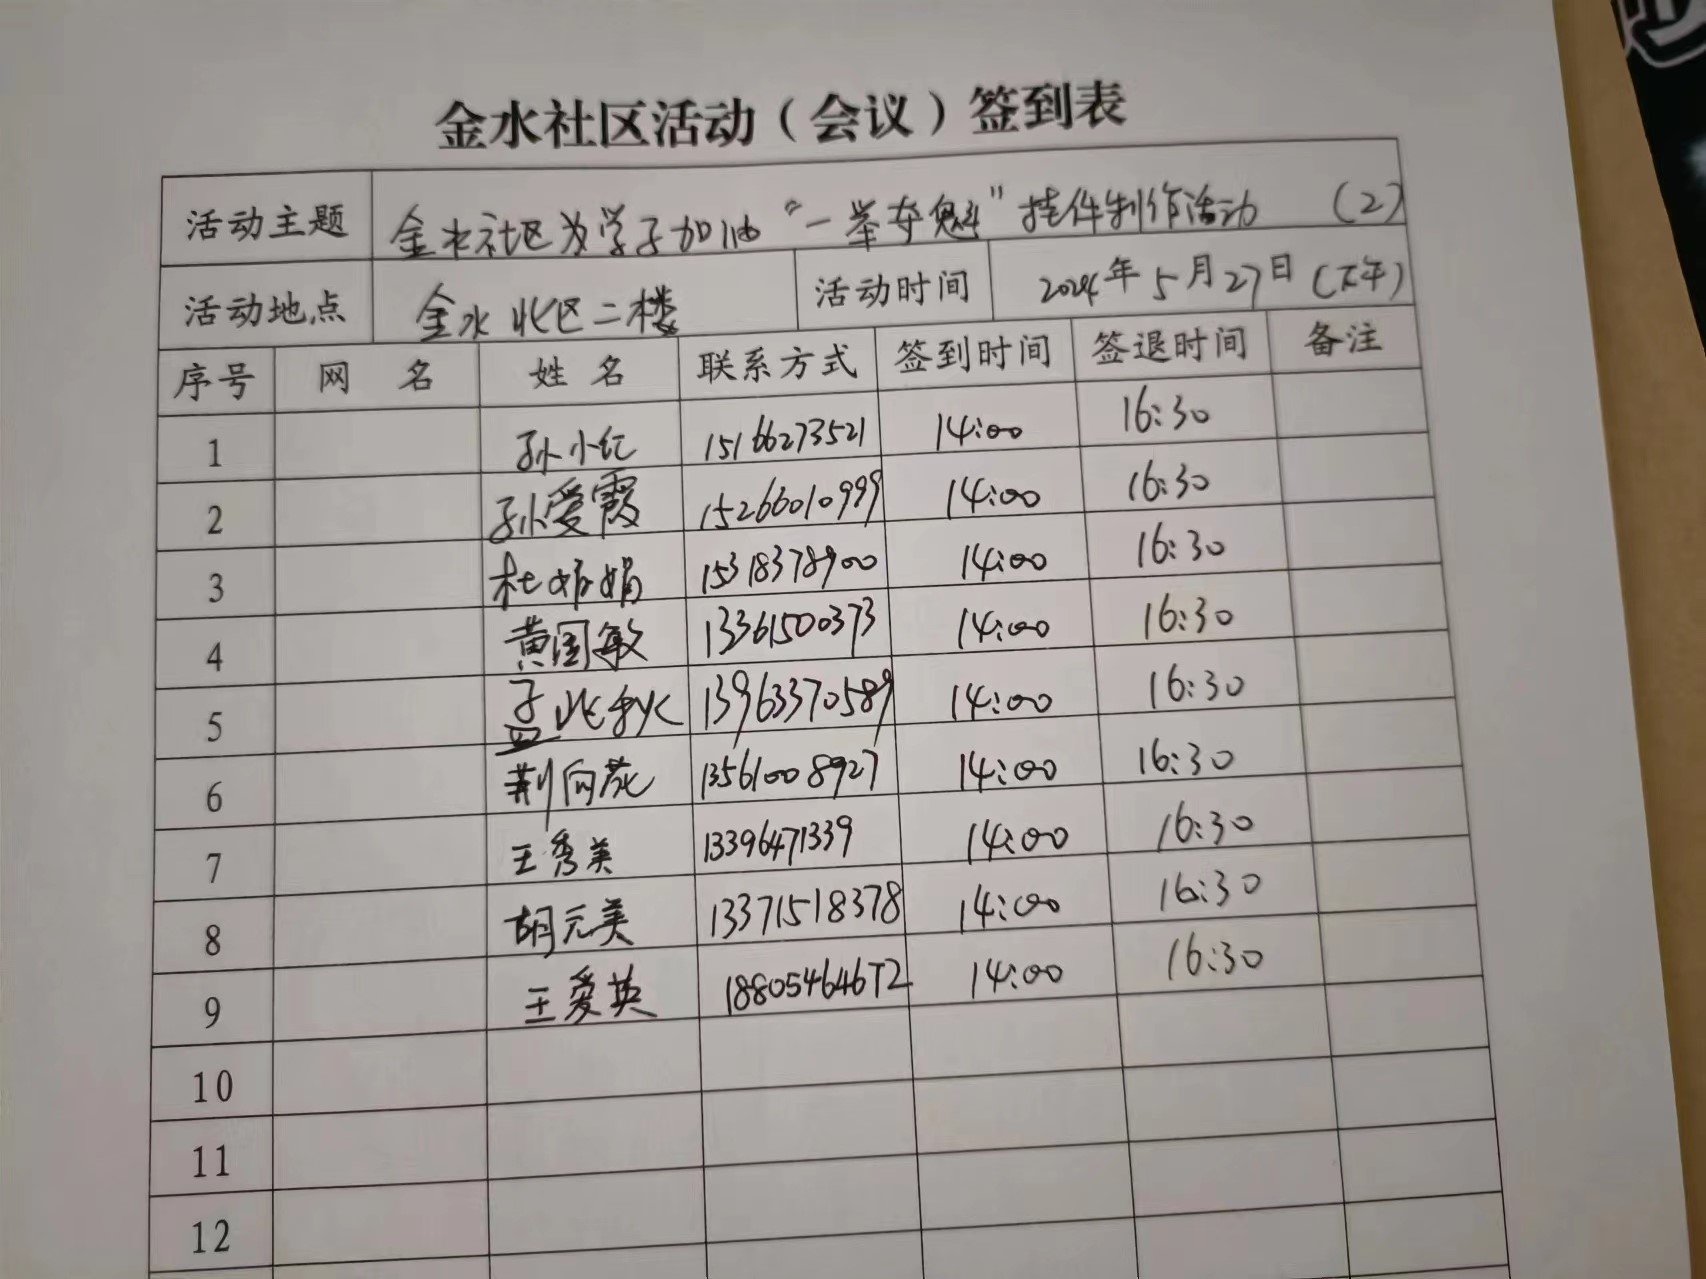 金水社区活动（会议）签到表
活动主题 金水社区为学子加油“一举夺魁”挂件制作活动 （2）
活动地点 金水北区二楼 活动时间 2024年5月27日（下午）
序号 网 名 姓 名 联系方式 签到时间 签退时间 备注
1 孙小红 15166273521 14:00 16:30
2 孙爱霞 15266010999 14:00 16:30
3 杜娟娟 15318378900 14:00 16:30
4 黄国敏 13361500373 14:00 16:30
5 孟兆秋 13963370589 14:00 16:30
6 荆向花 13561008927 14:00 16:30
7 王秀美 13396471339 14:00 16:30
8 胡元美 13371518378 14:00 16:30
9 王爱英 18805464672 14:00 16:30
10
11
12